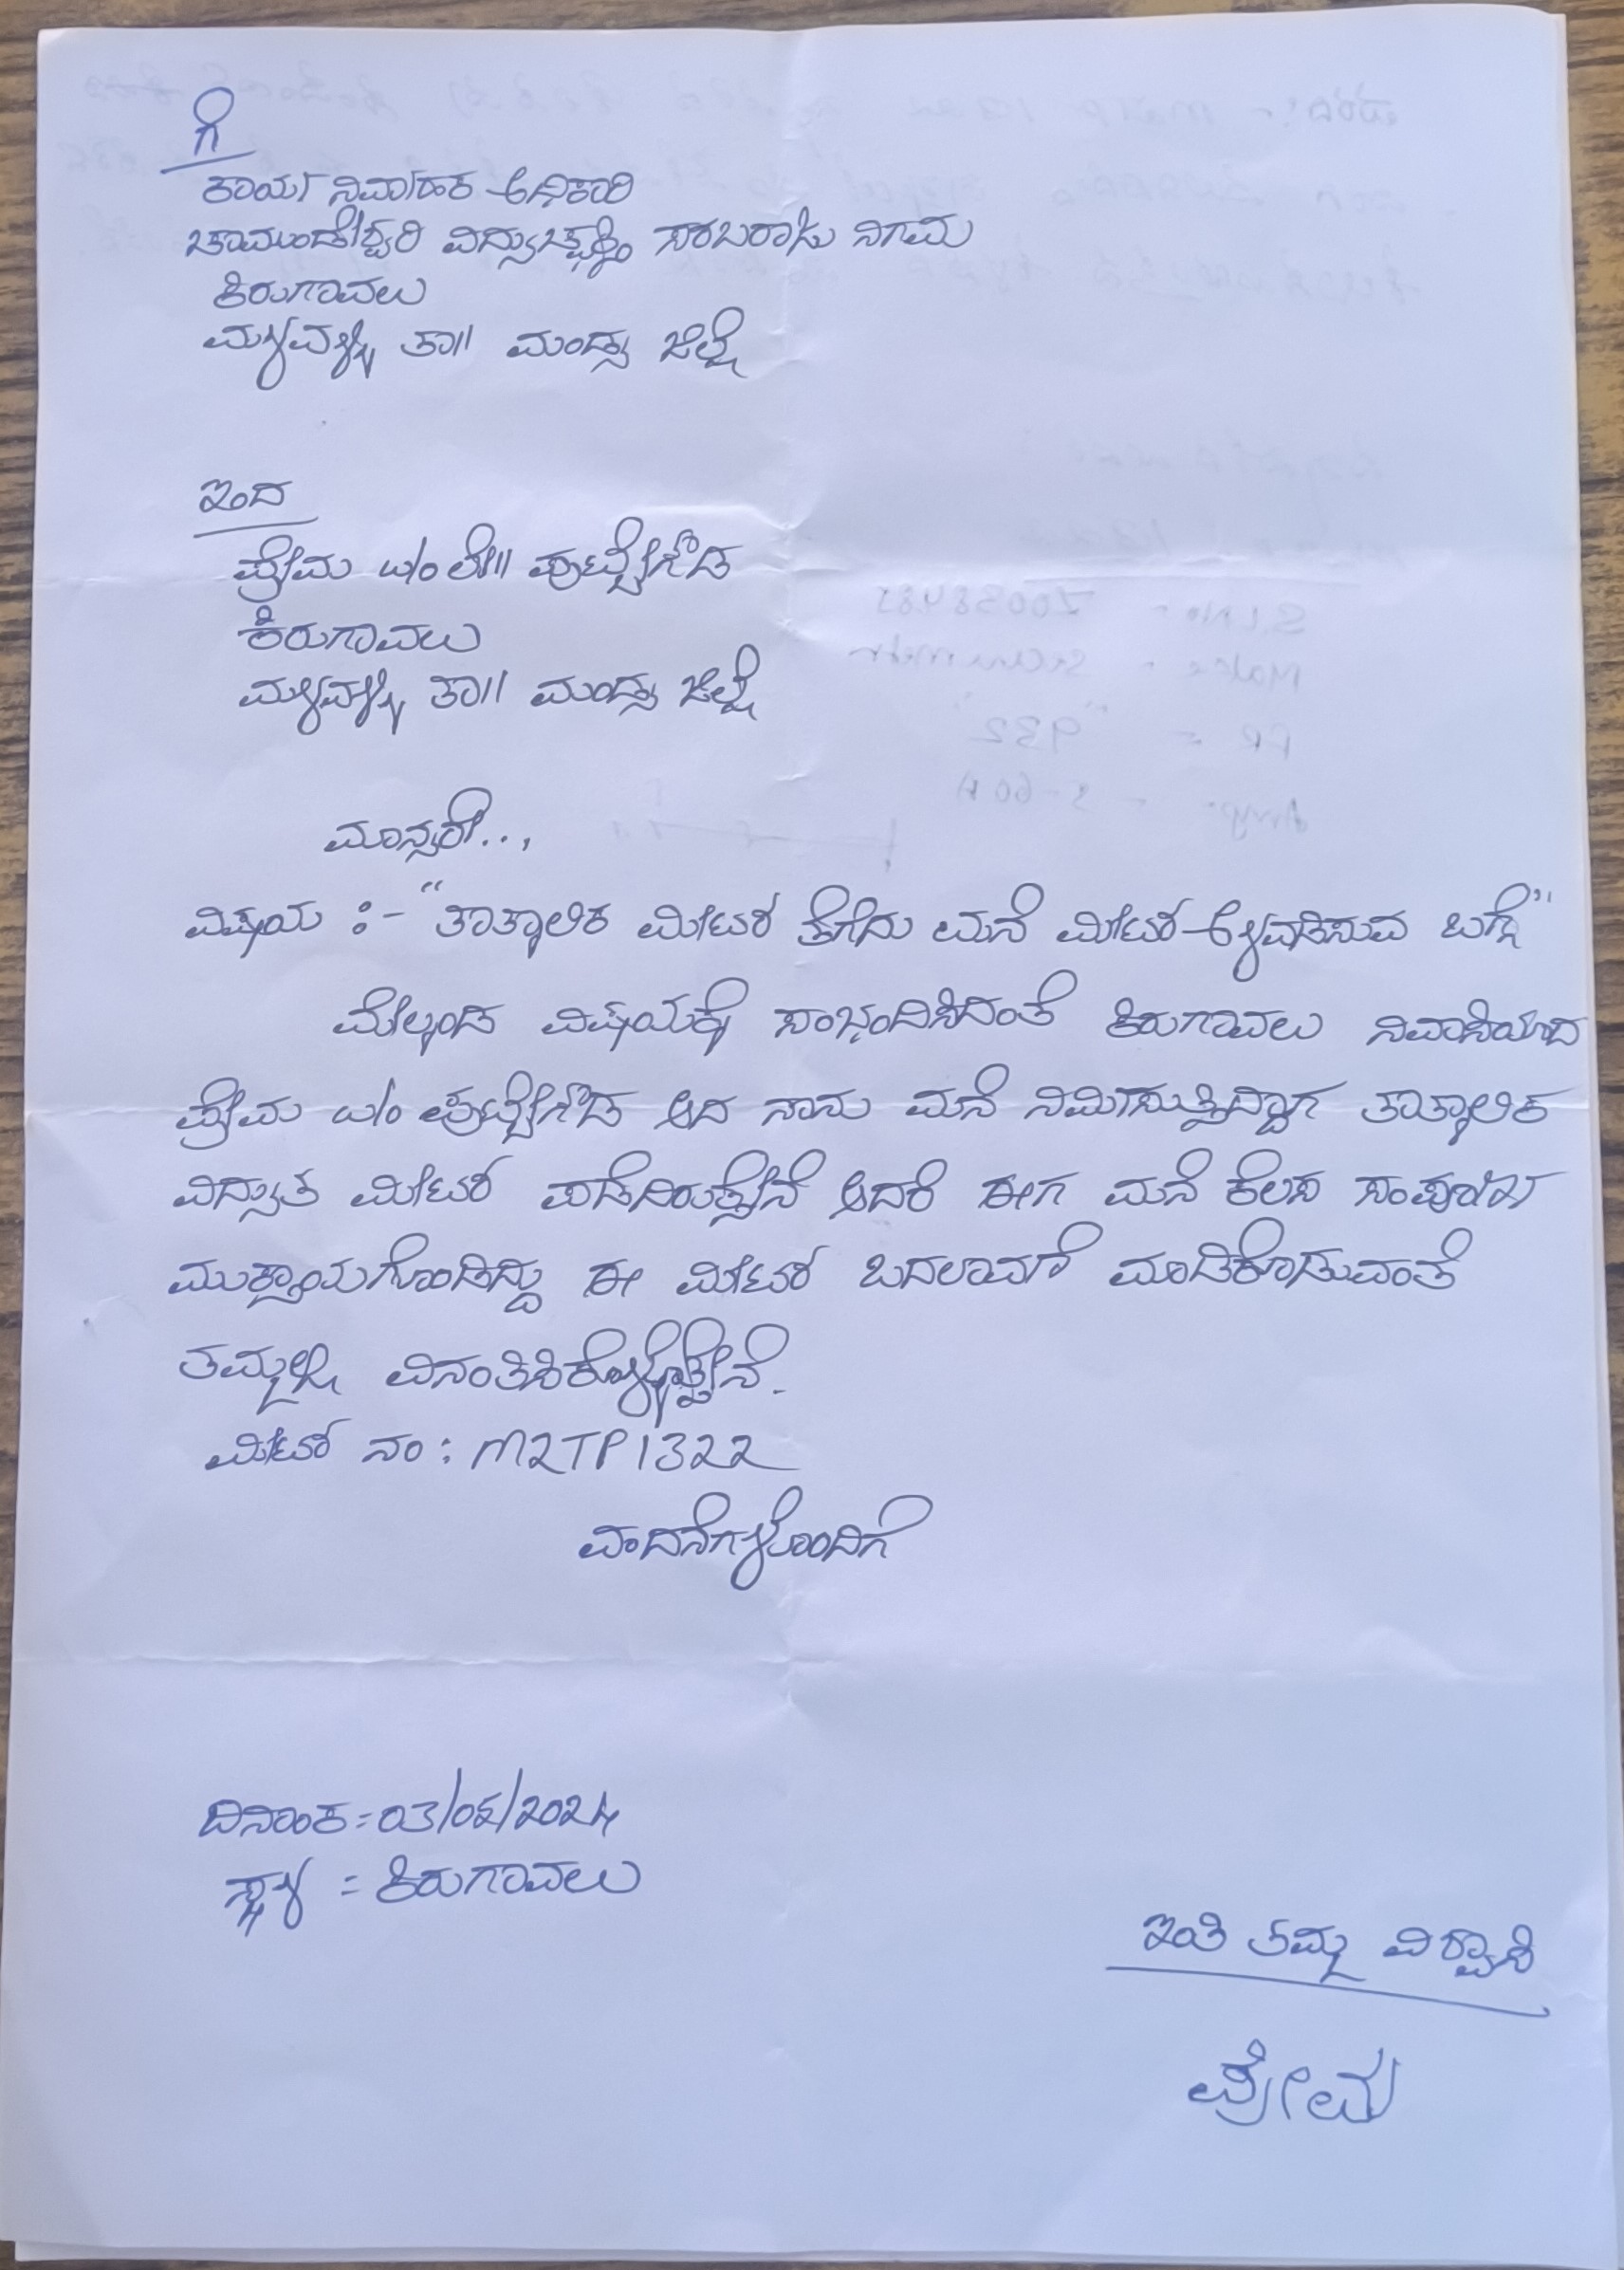 ಗೆ
ಕಾರ್ಯ ನಿರ್ವಾಹಕ ಅಧಿಕಾರಿ
ಚಾಮುಂಡೇಶ್ವರಿ ವಿದ್ಯುಚ್ಛಕ್ತಿ ಸರಬರಾಜು ನಿಗಮ
ಕಿರುಗಾವಲು
ಮಳವಳ್ಳಿ ತಾ|| ಮಂಡ್ಯ ಜಿಲ್ಲೆ
ಇಂದ
ಪ್ರೇಮ ಲೇ|| ಪುಟ್ಟೇಗೌಡ
ಕಿರುಗಾವಲು
ಮಳವಳ್ಳಿ ತಾ|| ಮಂಡ್ಯ ಜಿಲ್ಲೆ
ಮಾನ್ಯರೇ..,
ವಿಷಯ :- "ತಾತ್ಕಾಲಿಕ ಮೀಟರ್ ತೆಗೆದು ಮನೆ ಮೀಟರ್ ಅಳವಡಿಸುವ ಬಗ್ಗೆ"
ಮೇಲ್ಕಂಡ ವಿಷಯಕ್ಕೆ ಸಂಬಂದಿಸಿದಂತೆ ಕಿರುಗಾವಲು ನಿವಾಸಿಯಾದ
ಪ್ರೇಮ ಪುಟ್ಟೇಗೌಡ ಆದ ನಾನು ಮನೆ ನಿರ್ಮಿಸುತ್ತಿದ್ದಾಗ ತಾತ್ಕಾಲಿಕ
ವಿದ್ಯುತ ಮೀಟರ್ ಪಡೆದಿರುತ್ತೇನೆ ಆದರೆ ಈಗ ಮನೆ ಕೆಲಸ ಸಂಪೂರ್ಣ
ಮುಕ್ತಾಯಗೊಂಡಿದ್ದು ಈ ಮೀಟರ್ ಬದಲಾವಣೆ ಮಾಡಿಕೊಡುವಂತೆ
ತಮ್ಮಲ್ಲಿ ವಿನಂತಿಸಿಕೊಳ್ಳುತ್ತೇನೆ.
ಮೀಟರ್ ನಂ : M2TP1322
ವಂದನೆಗಳೊಂದಿಗೆ
ದಿನಾಂಕ = 03/02/2024
ಸ್ಥಳ = ಕಿರುಗಾವಲು
ಇಂತಿ ತಮ್ಮ ವಿಶ್ವಾಸಿ
ಪ್ರೇಮ